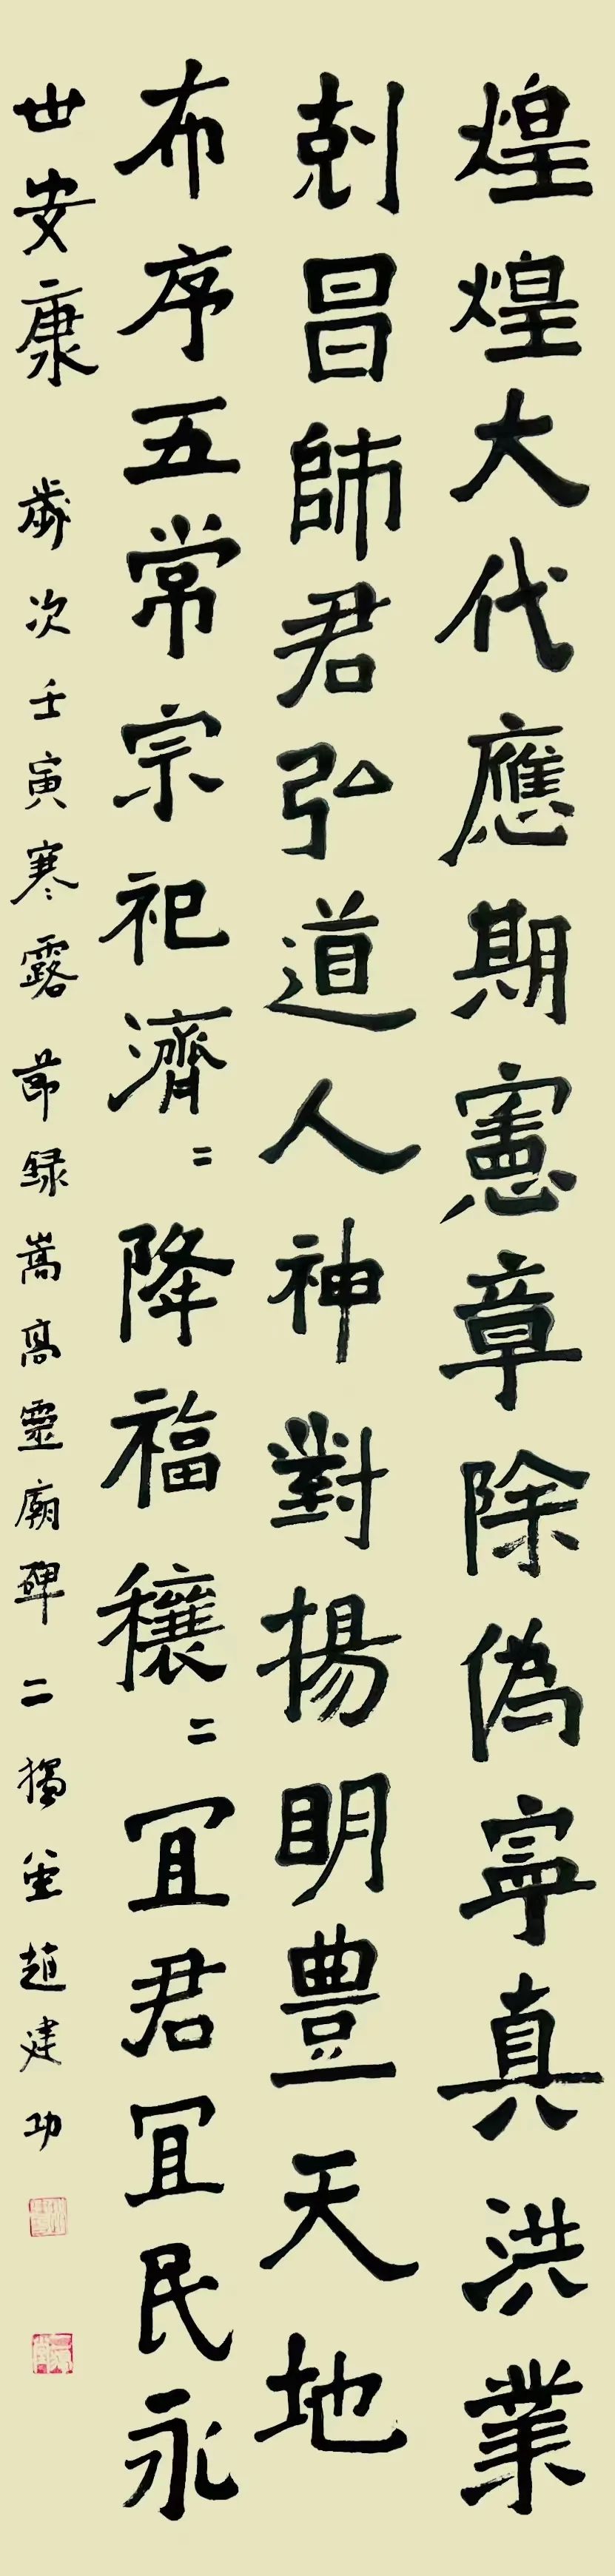 煌煌大代應期憲章除偽寧真洪業
剋昌師君弘道人神對揚明豊天地
布序五常宗祀濟〻降福穰〻冝君冝民永
世安康 歲次壬寅寒露 節録嵩高靈廟碑 二獨坣趙建功